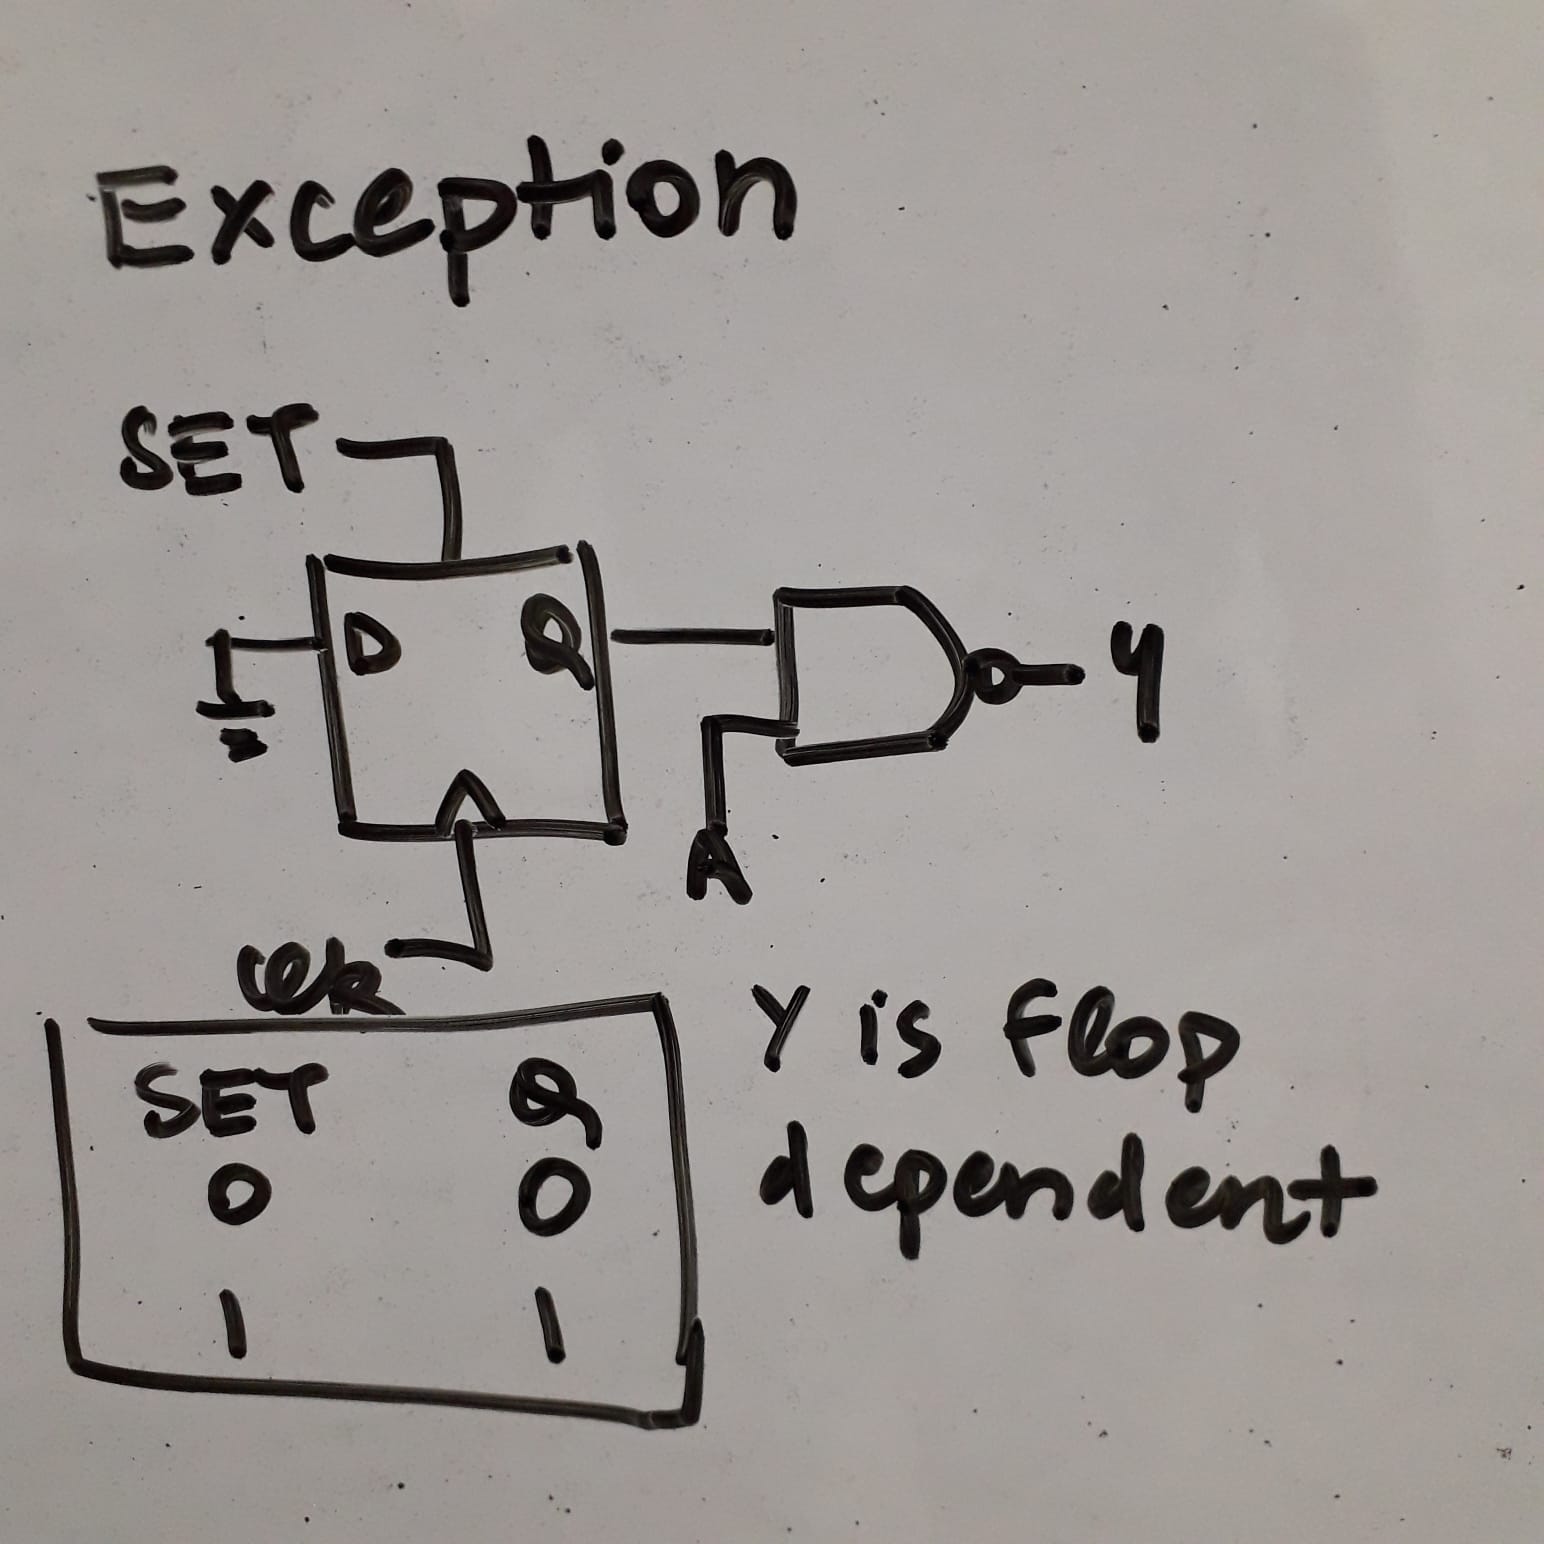 Exception
SET
D Q
Y
A
Clk
SET Q
0 0
1 1
Y is flop
dependent